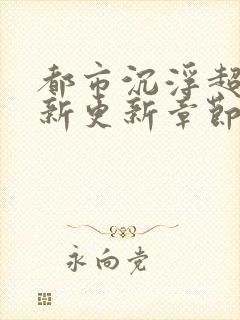 都市沉浮超
新更新章节
永向党